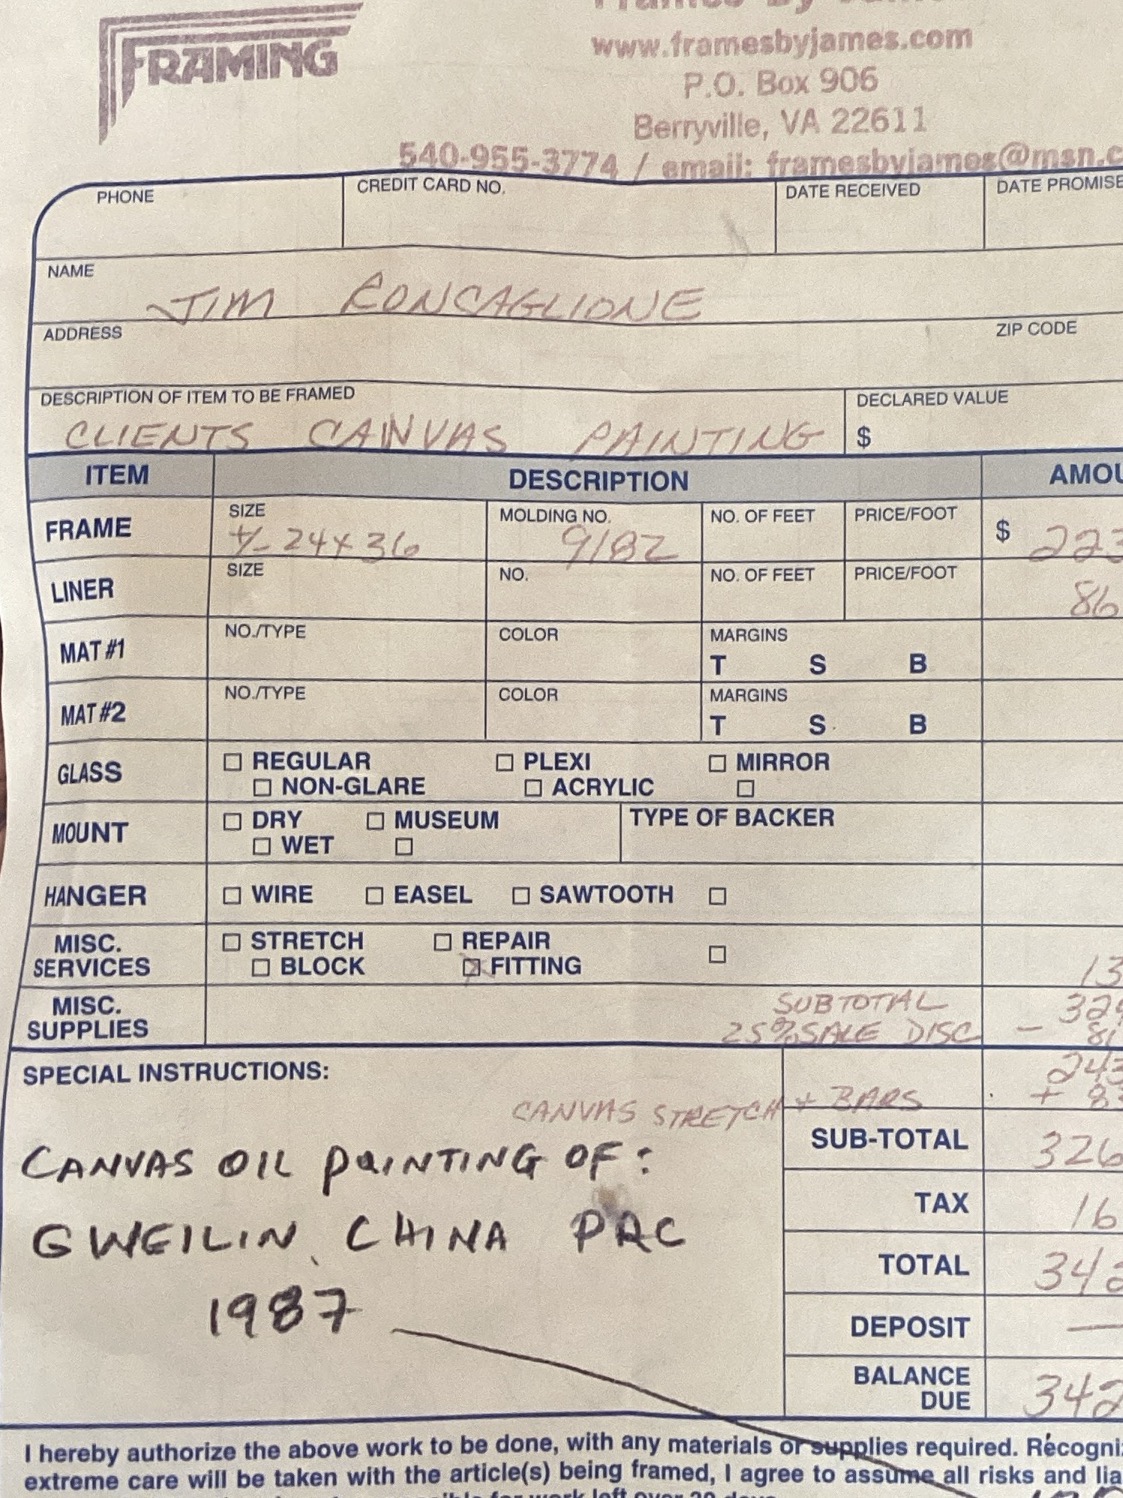 FRAMING
Frames By James
www.framesbyjames.com
P.O. Box 906
Berryville, VA 22611
540-955-3774 / email: framesbyjames@msn.c
PHONE CREDIT CARD NO. DATE RECEIVED DATE PROMISE
NAME
JIM RONCAGLIONE
ADDRESS ZIP CODE
DESCRIPTION OF ITEM TO BE FRAMED DECLARED VALUE
CLIENTS CANVAS PAINTING $
ITEM DESCRIPTION AMOU
FRAME SIZE MOLDING NO. NO. OF FEET PRICE/FOOT
+/- 24x36 9182 $ 223
LINER SIZE NO. NO. OF FEET PRICE/FOOT
86
MAT #1 NO./TYPE COLOR MARGINS
T S B
MAT #2 NO./TYPE COLOR MARGINS
T S B
GLASS REGULAR PLEXI MIRROR
NON-GLARE ACRYLIC
MOUNT DRY MUSEUM TYPE OF BACKER
WET
HANGER WIRE EASEL SAWTOOTH
MISC. SERVICES STRETCH REPAIR
BLOCK FITTING 13
MISC. SUPPLIES SUBTOTAL 324
25% SALE DISC - 81
SPECIAL INSTRUCTIONS: 243
CANVAS STRETCH + BARS + 83
SUB-TOTAL 326
CANVAS OIL PAINTING OF:
TAX 16
GWEILIN, CHINA PRC
TOTAL 342
1987
DEPOSIT —
BALANCE DUE 342
I hereby authorize the above work to be done, with any materials or supplies required. Recogni
extreme care will be taken with the article(s) being framed, I agree to assume all risks and lia